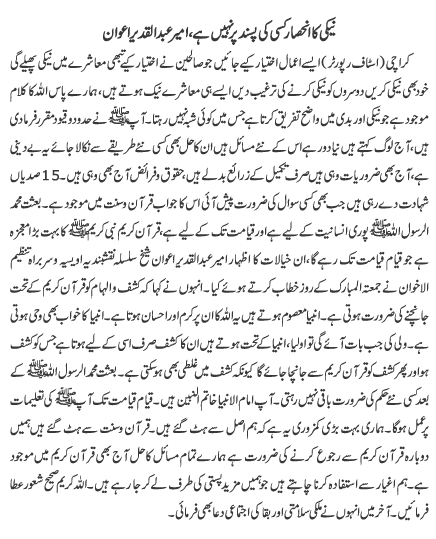 نیکی کا انحصار کسی کی پسند پر نہیں ہے، امیر عبدالقدیر اعوان
کراچی (اسٹاف رپورٹر) ایسے اعمال اختیار کیے جائیں جو صالحین نے اختیار کیے تبھی معاشرے میں نیکی پھیلے گی
خود بھی نیکی کریں دوسروں کو نیکی کرنے کی ترغیب دیں ایسی ہی معاشرے نیک ہوتے ہیں، ہمارے پاس اللہ کا کلام
موجود ہے جو نیکی اور بدی میں واضح تفریق کرتا ہے جس میں کوئی شبہ نہیں رہتا۔ آپ ﷺ نے حدود و قیود مقرر فرما دی
ہیں، آج لوگ کہتے ہیں نیا دور ہے اس کے نئے مسائل ہیں ان کا حل بھی کسی نئے طریقے سے نکالا جائے یہ بے دینی
ہے، آج بھی ضروریات وہی ہیں صرف تکمیل کے زرائع بدلے ہیں، حقوق و فرائض آج بھی وہی ہیں۔ 15 صدیاں
شہادت دے رہی ہیں جب بھی کسی سوال کی ضرورت پیش آئی اس کا جواب قرآن و سنت میں موجود ہے۔ بعثت محمد
الرسول اللہ ﷺ پوری انسانیت کے لیے ہے اور قیامت تک کے لیے ہے، قرآن کریم نبی کریم ﷺ کا بہت بڑا معجزہ
ہے جو قیام قیامت تک رہے گا، ان خیالات کا اظہار امیر عبدالقدیر اعوان شیخ سلسلہ نقشبندیہ اویسیہ و سربراہ تنظیم
الاخوان نے جمعتہ المبارک کے روز خطاب کرتے ہوئے کیا۔ انہوں نے کہا کہ کشف و الہام کو قرآن کریم کے تحت
جانچنے کی ضرورت ہوتی ہے۔ انبیا معصوم ہوتے ہیں یہ اللہ کا ان پر کرم اور احسان ہوتا ہے۔ انبیا کا خواب بھی وحی ہوتی
ہے۔ ولی کی جب بات آئے گی تو اولیا، انبیا کے تحت ہوتے ہیں ان کا کشف صرف اسی کے لیے ہوتا ہے جس کو کشف
ہوا اور پھر کشف کو قرآن کریم سے جانچا جائے گا کیونکہ کشف میں غلطی بھی ہو سکتی ہے۔ بعثت محمد الرسول اللہ ﷺ کے
بعد کسی نئے حکم کی ضرورت باقی نہیں رہتی۔ آپ امام الانبیا خاتم النبیین ہیں۔ قیام قیامت تک آپ ﷺ کی تعلیمات
پر عمل ہوگا۔ ہماری بہت بڑی کمزوری یہ ہے کہ ہم اصل سے ہٹ گئے ہیں۔ قرآن و سنت سے ہٹ گئے ہیں ہمیں
دوبارہ قرآن کریم سے رجوع کرنے کی ضرورت ہے ہمارے تمام مسائل کا حل آج بھی قرآن کریم میں موجود
ہے۔ ہم اغیار سے استفادہ کرنا چاہتے ہیں جو ہمیں مزید پستی کی طرف لے کر جا رہے ہیں۔ اللہ کریم صحیح شعور عطا
فرمائیں۔ آخر میں انہوں نے ملکی سلامتی اور بقا کی اجتماعی دعا بھی فرمائی۔